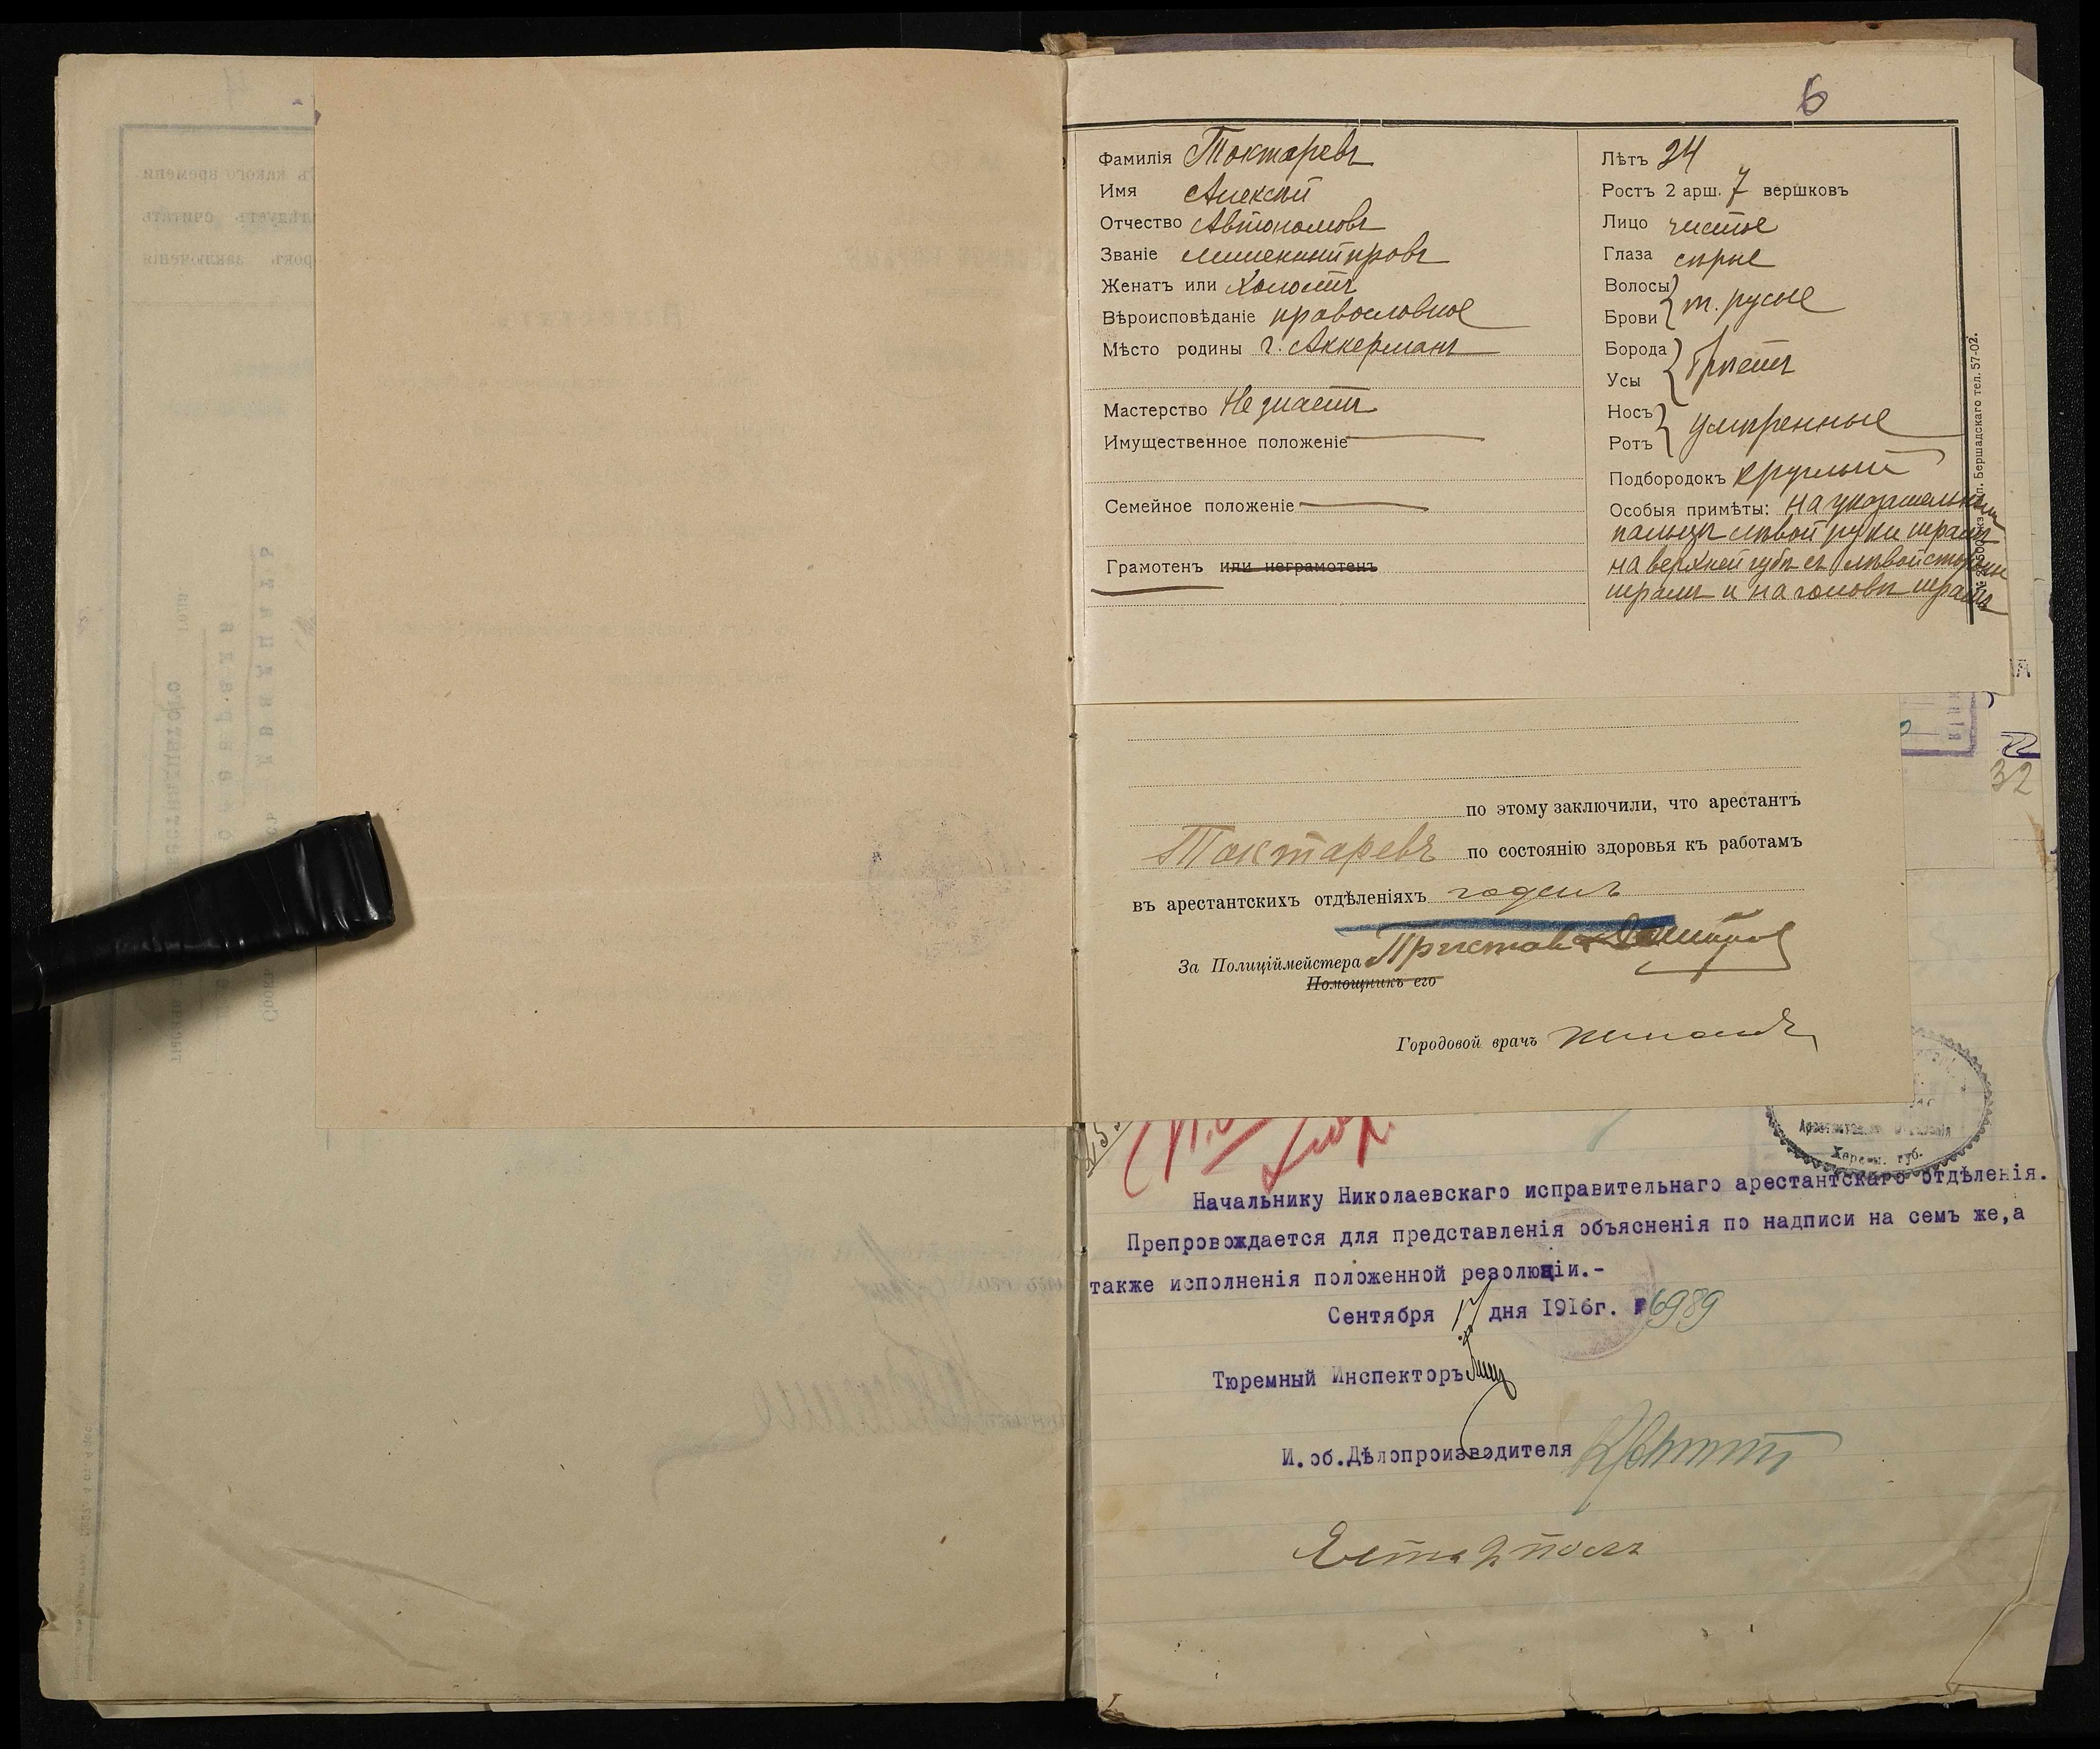 6
Фамилія Токтаревъ
Имя Алексѣй
Отчество Автономовъ
Званіе
Женатъ или Холостъ
Вѣроисповѣданіе православное
Мѣсто родины г. Аккерманъ
Мастерство Не знаетъ
Имущественное положеніе
Семейное положеніе
Грамотенъ или неграмотенъ
Лѣтъ 24
Ростъ 2 арш. 7 вершковъ
Лицо чистое
Глаза сѣрые
Волосы
Брови т. русые
Борода
Усы брѣетъ
Носъ
Ротъ умѣренные
Подбородокъ круглый
Особыя примѣты: На указательномъ
пальцѣ лѣвой руки шрамъ
на верхней губѣ съ лѣвой стороны
шрамъ и на головѣ шрамъ
п. Бершадскаго тел. 57-02.
32
по этому заключили, что арестантъ
Токтаревъ по состоянію здоровья къ работамъ
въ арестантскихъ отдѣленіяхъ годенъ
За Полиціймейстера Приставъ
Помощникъ его
Городовой врачъ
Херсон. губ.
Начальнику Николаевскаго исправительнаго арестантскаго отдѣленія.
Препровождается для представленія объясненія по надписи на семъ же,а
также исполненія положенной резолюціи.-
Сентября 17 дня 1916г. № 6989
Тюремный Инспекторъ
И.об.Дѣлопроизводителя